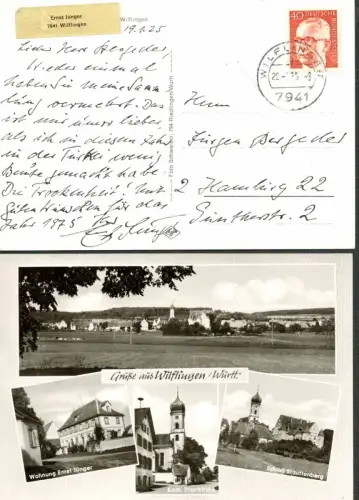 Ernst Juenger
7941 Wilflingen
Wilflingen
19.1.75
Lieber Herr Bergeder,
Wieder einmal
haben Sie meine Samm
lung vermehrt. Das
ist mir umso lieber,
als ich in diesem Jahr
in der Türkei wenig
Beute gemacht habe
Die Trockenheit! Mit
guten Wünschen für das
Jahr 1975 Ihr
Ernst Jünger
Foto Schweizer, 794 Riedlingen/Württ
40 DEUTSCHE BUNDESPOST
WILFLINGEN
7941
Herrn
Jürgen Bergeder
2 Hamburg 22
2
Grüße aus Wilflingen/Württ.
Wohnung Ernst Jünger
Kath. Pfarrkirche
Schloß Stauffenberg